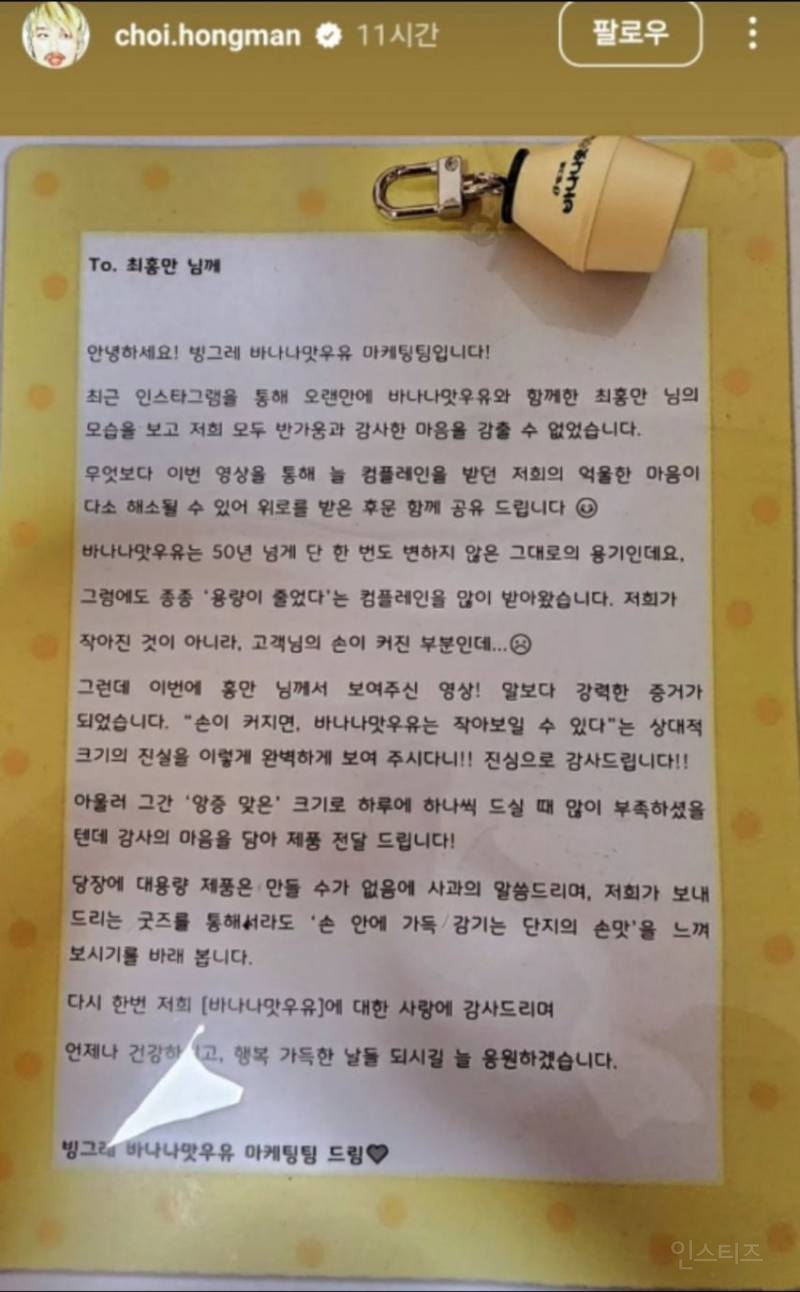 choi.hongman 11시간 팔로우
To. 최홍만 님께
안녕하세요! 빙그레 바나나맛우유 마케팅팀입니다!
최근 인스타그램을 통해 오랜만에 바나나맛우유와 함께한 최홍만 님의
모습을 보고 저희 모두 반가움과 감사한 마음을 감출 수 없었습니다.
무엇보다 이번 영상을 통해 늘 컴플레인을 받던 저희의 억울한 마음이
다소 해소될 수 있어 위로를 받은 후문 함께 공유 드립니다 ☺
바나나맛우유는 50년 넘게 단 한 번도 변하지 않은 그대로의 용기인데요,
그럼에도 종종 ‘용량이 줄었다’는 컴플레인을 많이 받아왔습니다. 저희가
작아진 것이 아니라, 고객님의 손이 커진 부분인데...☹
그런데 이번에 홍만 님께서 보여주신 영상! 말보다 강력한 증거가
되었습니다. “손이 커지면, 바나나맛우유는 작아보일 수 있다”는 상대적
크기의 진실을 이렇게 완벽하게 보여 주시다니!! 진심으로 감사드립니다!!
아울러 그간 ‘앙증 맞은’ 크기로 하루에 하나씩 드실 때 많이 부족하셨을
텐데 감사의 마음을 담아 제품 전달 드립니다!
당장에 대용량 제품은 만들 수가 없음에 사과의 말씀드리며, 저희가 보내
드리는 굿즈를 통해서라도 ‘손 안에 가득 감기는 단지의 손맛’을 느껴
보시기를 바래 봅니다.
다시 한번 저희 [바나나맛우유]에 대한 사랑에 감사드리며
언제나 행복 가득한 날들 되시길 늘 응원하겠습니다.
빙그레 바나나맛우유 마케팅팀 드림♥
인스티즈